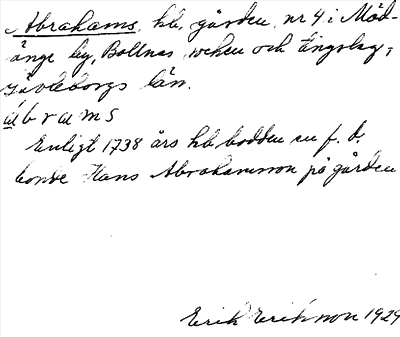 Abrahams, hb, gården nr 4 i Mäd-
änge by, Bollnäs socken och tingslag,
Gävleborgs län.
ábrams
Enligt 1738 års hb bodde en f. d.
bonde Hans Abrahamsson på gården
Erik Eriksson 1929